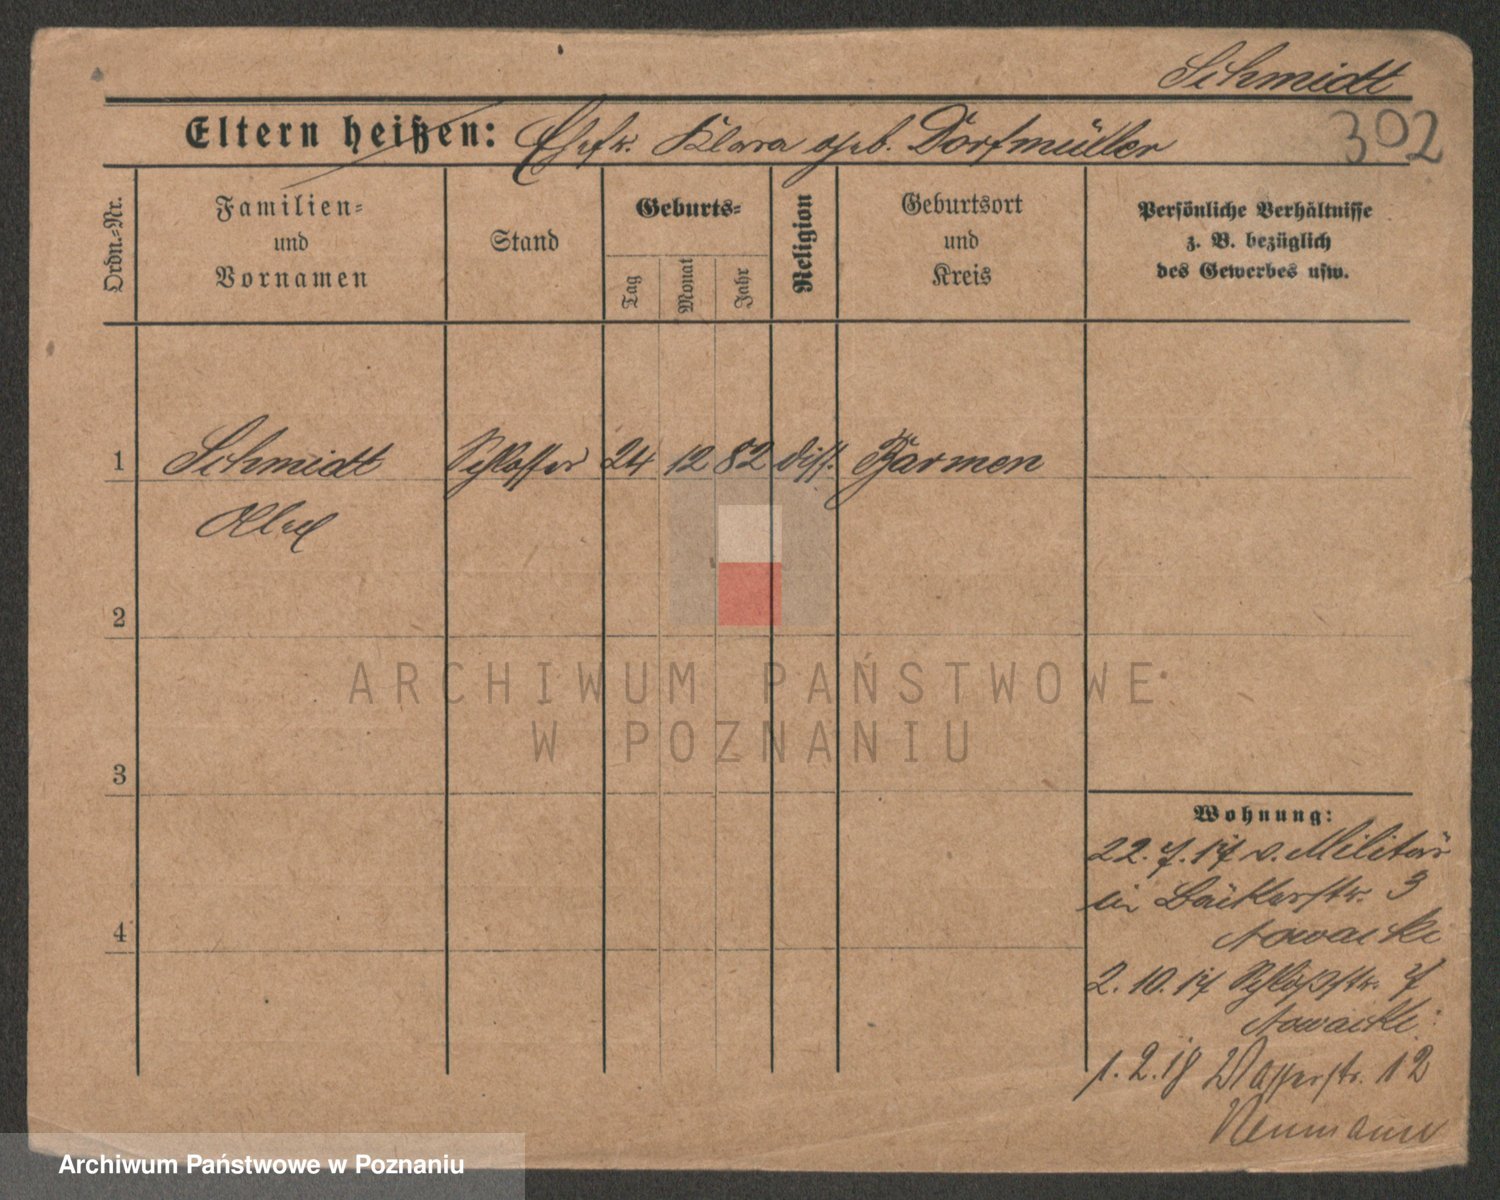 Schmidt
302
Eltern heißen: Ehefr. Klara geb. Dorfmüller
Ordn.-Nr.
Familien-
und
Vornamen
Stand
Geburts-
Tag
Monat
Jahr
Religion
Geburtsort
und
Kreis
Persönliche Verhältnisse
z. B. bezüglich
des Gewerbes usw.
1 Schmidt Schlosser 24 12 82 diss. Barmen
2
3
4
Wohnung:
22.7.17 v. Militär
in Bäckerstr. 3
Nowacki
2.10.17 Schloßstr. 7
Nowacki
1.2.18 Wasserstr. 12
Neumann
ARCHIWUM PAŃSTWOWE
W POZNANIU
Archiwum Państwowe w Poznaniu